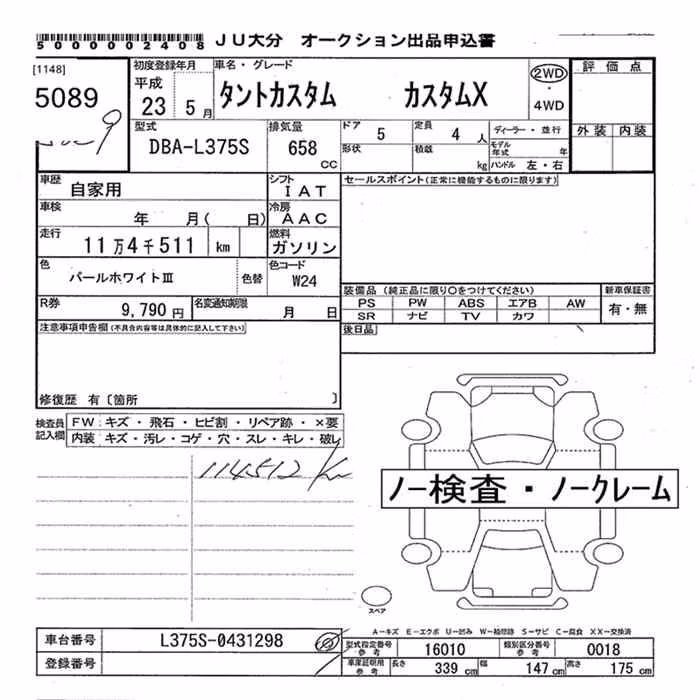 5000002408 JU大分 オークション出品申込書
[1148]
5089
初度登録年月
平成
23 5 月
車名・グレード
タントカスタム カスタムX
2WD
・
4WD
評価点
外装 内装
型式
DBA-L375S
排気量
658
CC
ドア 5
定員 4 人
ディーラー・並行
形状
積載
kg
モデル年式 年
ハンドル 左・右
車歴 自家用
シフト
IAT
セールスポイント(正常に機能するものに限ります)
車検 年 月( 日)
冷房
AAC
走行 11万4千511 km
燃料
ガソリン
色 パールホワイトⅢ 色替
色コード
W24
R券 9,790 円
名変通知期限 月 日
装備品 (純正品に限り○をつけてください)
新車保証書
PS PW ABS エアB AW
SR ナビ TV カワ
有・無
後日品
注意事項申告欄(不具合内容等は具体的に記入して下さい)
修復歴 有〔箇所 〕
検査員記入欄
FW:キズ・飛石・ヒビ割・リペア跡・×要
内装:キズ・汚レ・コゲ・穴・スレ・キレ・破レ
114512 Km
ノー検査・ノークレーム
スペア
A-キズ E-エクボ U-凹み W-補修跡 S-サビ C-腐食 XX-交換済
車台番号 L375S-0431298
登録番号
型式指定番号参考 16010
類別区分番号参考 0018
車庫証明用参考 長さ 339 cm 幅 147 cm 高さ 175 cm